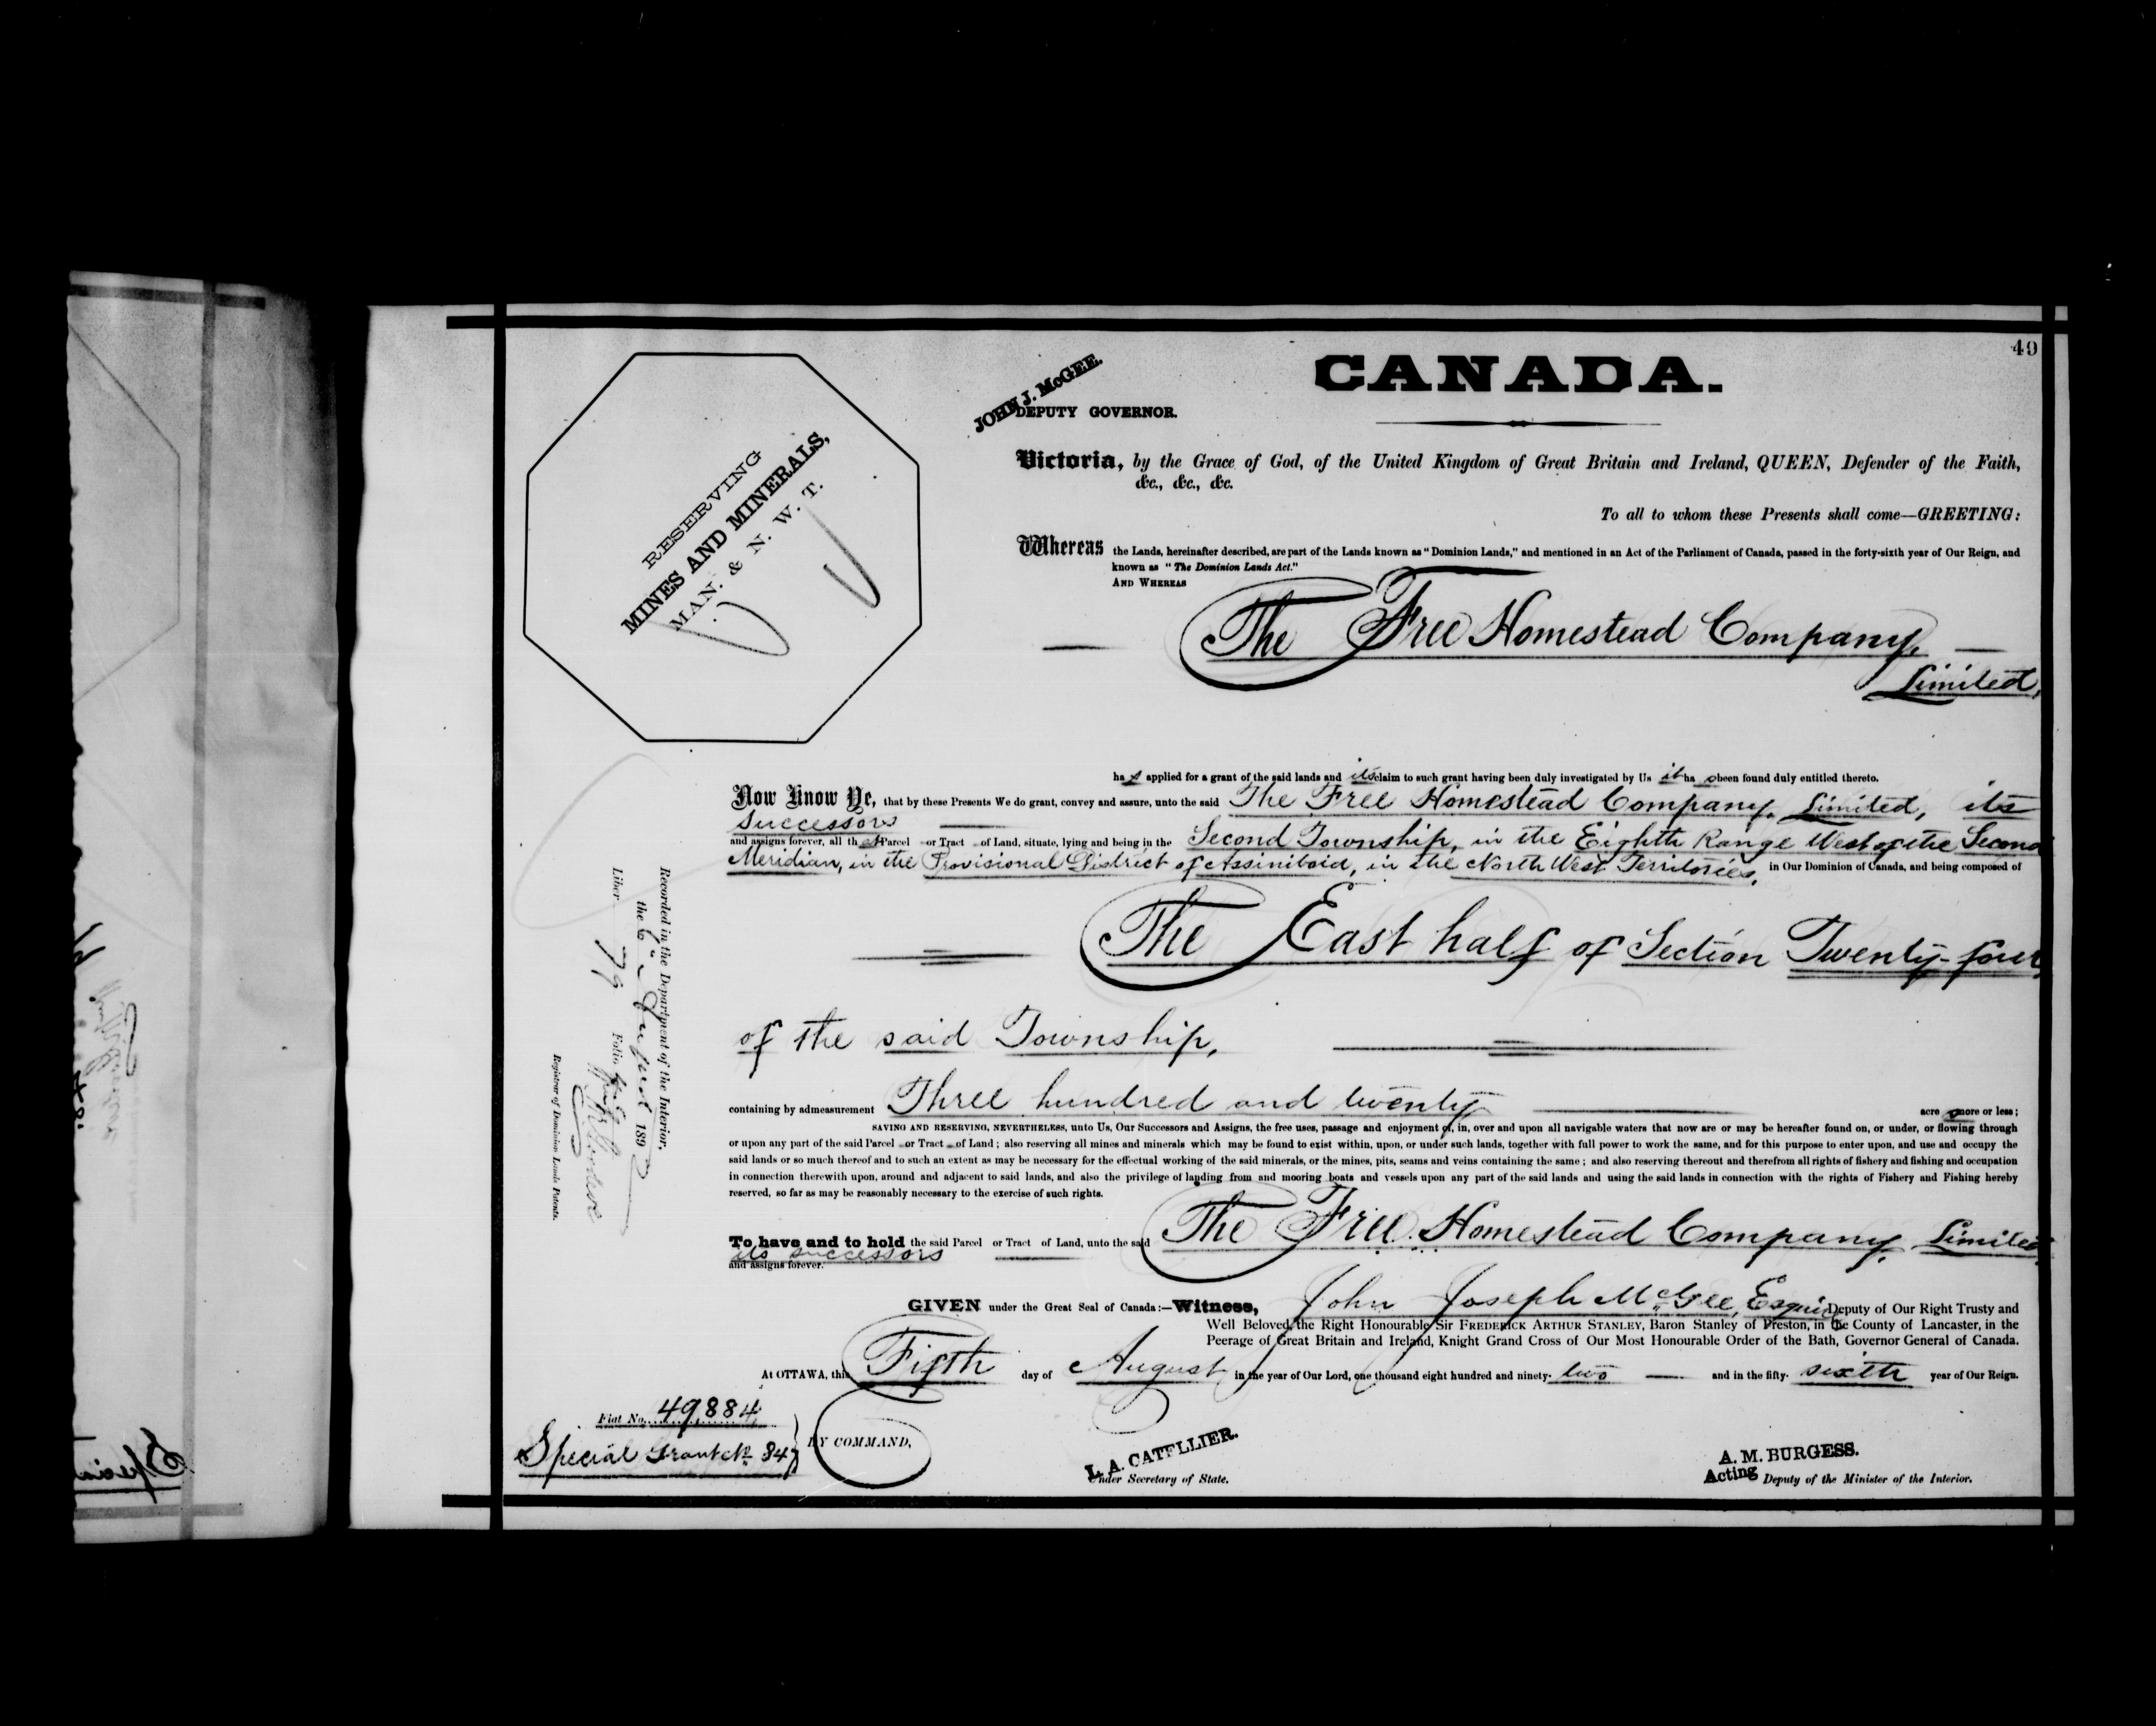 49
CANADA.
JOHN J. McGEE.
DEPUTY GOVERNOR.
RESERVING
MINES AND MINERALS,
MAN. & N. W. T.
Victoria, by the Grace of God, of the United Kingdom of Great Britain and Ireland, QUEEN, Defender of the Faith,
&c., &c., &c.
To all to whom these Presents shall come—GREETING:
Whereas the Lands, hereinafter described, are part of the Lands known as "Dominion Lands," and mentioned in an Act of the Parliament of Canada, passed in the forty-sixth year of Our Reign, and
known as "The Dominion Lands Act."
AND WHEREAS
The Free Homestead Company,
Limited,
has applied for a grant of the said lands and its claim to such grant having been duly investigated by Us it has been found duly entitled thereto.
Now Know Ye, that by these Presents We do grant, convey and assure, unto the said The Free Homestead Company, Limited, its
successors
and assigns forever, all that Parcel or Tract of Land, situate, lying and being in the Second Township, in the Eighth Range West of the Second
Meridian, in the Provisional District of Assiniboia, in the North West Territories, in Our Dominion of Canada, and being composed of
The East half of Section Twenty-four
of the said Township,
containing by admeasurement Three hundred and twenty acres more or less;
SAVING AND RESERVING, NEVERTHELESS, unto Us, Our Successors and Assigns, the free uses, passage and enjoyment of, in, over and upon all navigable waters that now are or may be hereafter found on, or under, or flowing through
or upon any part of the said Parcel or Tract of Land; also reserving all mines and minerals which may be found to exist within, upon, or under such lands, together with full power to work the same, and for this purpose to enter upon, and use and occupy the
said lands or so much thereof and to such an extent as may be necessary for the effectual working of the said minerals, or the mines, pits, seams and veins containing the same; and also reserving thereout and therefrom all rights of fishery and fishing and occupation
in connection therewith upon, around and adjacent to said lands, and also the privilege of landing from and mooring boats and vessels upon any part of the said lands and using the said lands in connection with the rights of Fishery and Fishing hereby
reserved, so far as may be reasonably necessary to the exercise of such rights.
To have and to hold the said Parcel or Tract of Land, unto the said The Free Homestead Company, Limited
its successors
and assigns forever.
GIVEN under the Great Seal of Canada:—Witness, John Joseph McGee, Esquire Deputy of Our Right Trusty and
Well Beloved, the Right Honourable Sir FREDERICK ARTHUR STANLEY, Baron Stanley of Preston, in the County of Lancaster, in the
Peerage of Great Britain and Ireland, Knight Grand Cross of Our Most Honourable Order of the Bath, Governor General of Canada.
At OTTAWA, this Fifth day of August in the year of Our Lord, one thousand eight hundred and ninety-two and in the fifty-sixth year of Our Reign.
Fiat No. 49884
Special Grant No 84
BY COMMAND,
L. A. CATELLIER.
Under Secretary of State.
A. M. BURGESS.
Acting Deputy of the Minister of the Interior.
Recorded in the Department of the Interior.
the 6th August 1892
Liber 79 Folio
Registrar of Dominion Lands Patents.